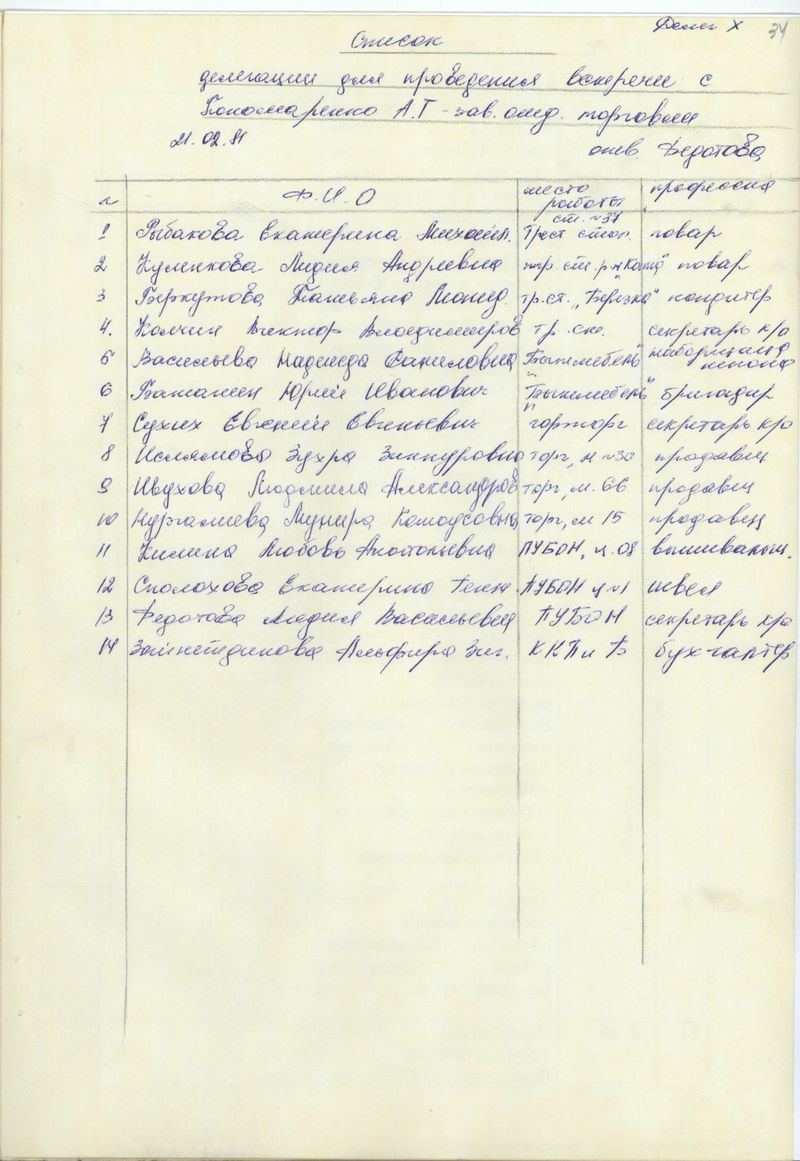 Делег X 34
Список
делегации для проведения встречи с
Пономаренко А.Г - зав. отд. торговли
21.02.91
отв. Федотова
n Ф.И.О место работы профессия
1 Рыбакова Екатерина Михайл. Трест стол. ст. №37 повар
2 Куленкова Лидия Андреевна тр. ст. повар
3 Беркутова Татьяна Леонид. тр.ст. "Березка" кондитер
4. Колчин Виктор Владимиров тр. ст. секретарь к/о
5 Васильева Надежда Даниловна
6 Баталин Юрий Иванович бригадир
7 Сухих Евгений Евгеньевич горторг секретарь к/о
8 Ислямова Зухра Зиннуровна торг, м №30 продавец
9 Ивухова Людмила Александров торг, м. 66 продавец
10 Нургалиева Мунира Камодсовна торг, м 15 продавец
11 Килина Любовь Анатольевна ПУБОН, ц. 08 вышивальщ.
12 Сполохова Екатерина Генн. ПУБОН ц №1 швея
13 Федотова Лидия Васильевна ПУБОН секретарь к/о
14 Зайнетдинова Альфира Зиг. ККП и Б бухгалтер